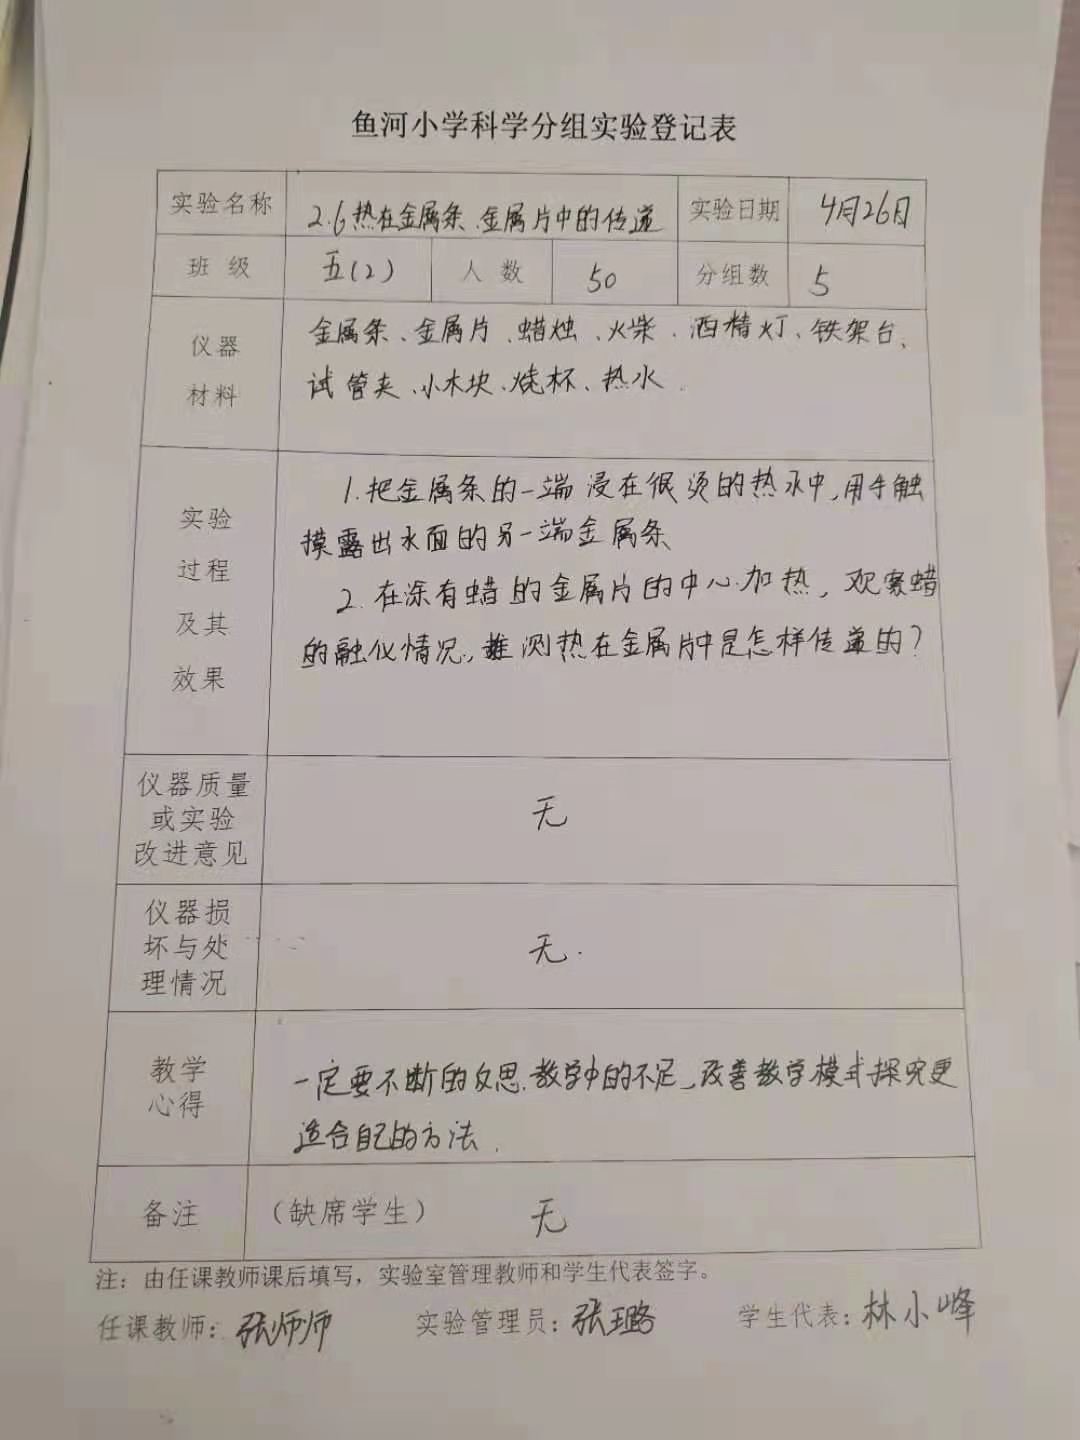 鱼河小学科学分组实验登记表
实验名称 2.6热在金属条、金属片中的传递 实验日期 4月26日
班 级 五(2) 人 数 50 分组数 5
仪器
材料
金属条、金属片、蜡烛、火柴、酒精灯、铁架台、
试管夹、小木块、烧杯、热水.
实验
过程
及其
效果
1.把金属条的一端浸在很烫的热水中,用手触
摸露出水面的另一端金属条
2.在涂有蜡的金属片的中心加热,观察蜡
的融化情况,推测热在金属片中是怎样传递的?
仪器质量
或实验
改进意见
无
仪器损
坏与处
理情况
无.
教学
心得
一定要不断的反思.教学中的不足,改善教学模式探究更
适合自己的方法.
备注 (缺席学生) 无
注:由任课教师课后填写,实验室管理教师和学生代表签字。
任课教师:张师师 实验管理员:张璐 学生代表:林小峰